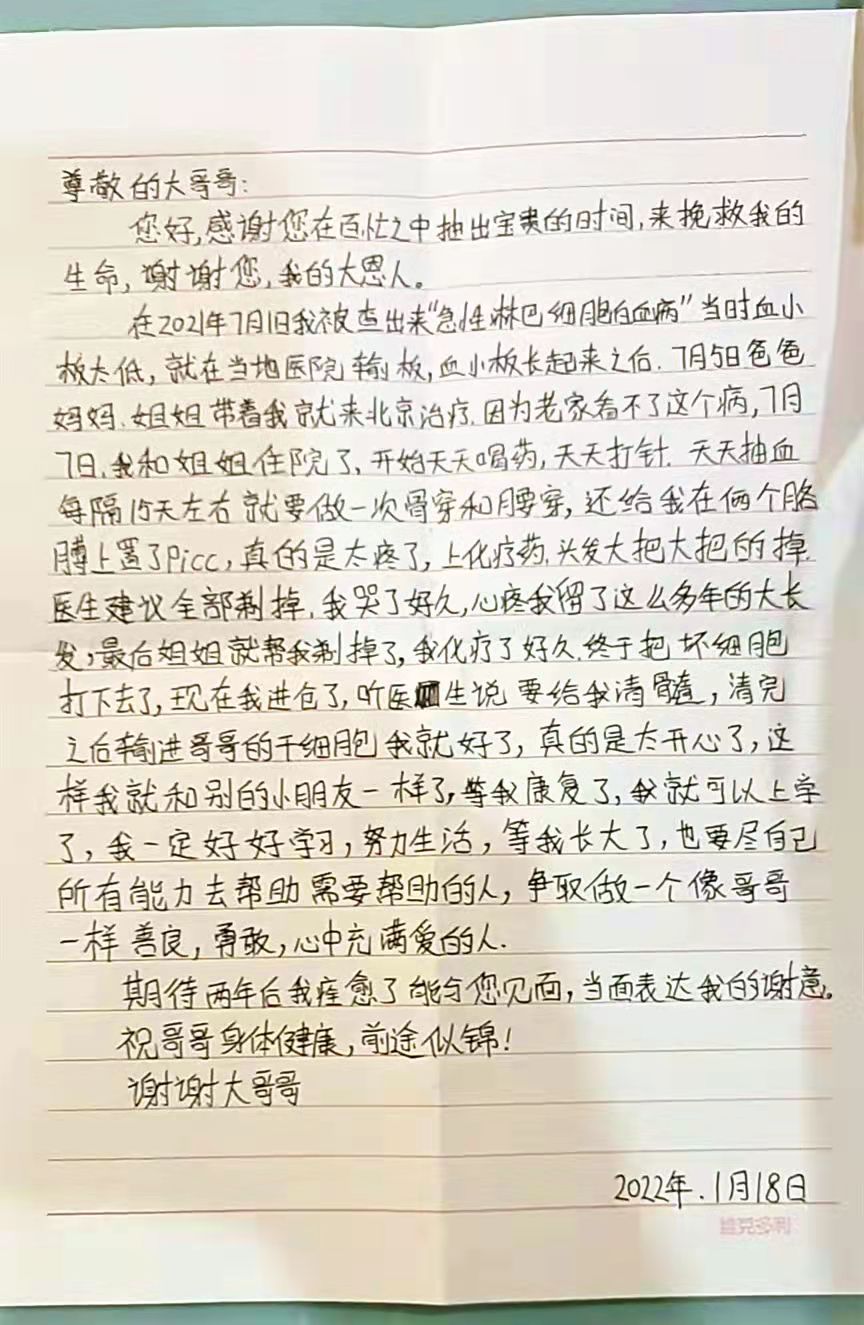 尊敬的大哥哥:
您好,感谢您在百忙之中抽出宝贵的时间,来挽救我的
生命,谢谢您,我的大恩人。
在2021年7月1日我被查出来“急性淋巴细胞白血病”当时血小
板太低,就在当地医院输板,血小板长起来之后.7月5日爸爸
妈妈.姐姐带着我就来北京治疗.因为老家看不了这个病,7月
7日.我和姐姐住院了,开始天天喝药,天天打针.天天抽血
每隔15天左右就要做一次骨穿和腰穿,还给我在俩个胳
膊上置了Picc,真的是太疼了,上化疗药.头发大把大把的掉.
医生建议全部剃掉.我哭了好久,心疼我留了这么多年的大长
发,最后姐姐就帮我剃掉了,我化疗了好久.终于把坏细胞
打下去了,现在我进仓了,听医生说要给我清髓,清完
之后输进哥哥的干细胞我就好了,真的是太开心了,这
样我就和别的小朋友一样了,等我康复了,我就可以上学
了,我一定好好学习,努力生活,等我长大了,也要尽自己
所有能力去帮助需要帮助的人,争取做一个像哥哥
一样善良,勇敢,心中充满爱的人.
期待两年后我痊愈了能与您见面,当面表达我的谢意。
祝哥哥身体健康,前途似锦!
谢谢大哥哥
2022年.1月18日
维克多利